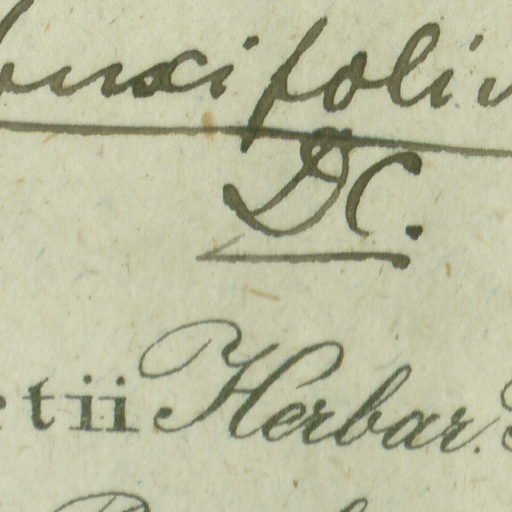 buxifoli
DC.
etii Herbar.